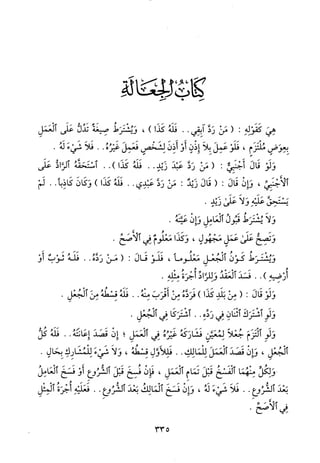 كتاب الجعالة
هِيَ كَقَوْلِهِ : ( مَنْ رَدَّ آبِقِي . . فَلَهُ كَذَا ) ، وَيُشْتَرَطُ صِيغَةٌ تَدُلُّ عَلَى الْعَمَلِ
بِعِوَضٍ مُلْتَزَمٍ ، فَلَوْ عَمِلَ بِلاَ إِذْنٍ أَوْ أَذِنَ لِشَخْصٍ فَعَمِلَ غَيْرُهُ . . فَلاَ شَيْءَ لَهُ .
وَلَوْ قَالَ أَجْنَبِيٌّ : ( مَنْ رَدَّ عَبْدَ زَيْدٍ . . فَلَهُ كَذَا ) . . اسْتَحَقَّهُ الرَّادُّ عَلَى
الأَجْنَبِيِّ ، وَإِنْ قَالَ : ( قَالَ زَيْدٌ : مَنْ رَدَّ عَبْدِي . . فَلَهُ كَذَا ) وَكَانَ كَاذِباً . . لَمْ
يَسْتَحِقَّ عَلَيْهِ وَلاَ عَلَى زَيْدٍ .
وَلاَ يُشْتَرَطُ قَبُولُ الْعَامِلِ وَإِنْ عَيَّنَهُ .
وَتَصِحُّ عَلَى عَمَلٍ مَجْهُولٍ ، وَكَذَا مَعْلُومٌ فِي الأَصَحِّ .
وَيُشْتَرَطُ كَوْنُ الْجُعْلِ مَعْلُوماً ، فَلَوْ قَالَ : ( مَنْ رَدَّهُ . . فَلَهُ ثَوْبٌ أَوْ
أُرْضِيهِ ) . . فَسَدَ الْعَقْدُ وَلِلرَّادِّ أُجْرَةُ مِثْلِهِ .
وَلَوْ قَالَ : ( مِنْ بَلَدِ كَذَا ) فَرَدَّهُ مِنْ أَقْرَبَ مِنْهُ . . فَلَهُ قِسْطُهُ مِنَ الْجُعْلِ .
وَلَوِ اشْتَرَكَ اثْنَانِ فِي رَدِّهِ . . اشْتَرَكَا فِي الْجُعْلِ .
وَلَوِ الْتَزَمَ جُعْلاً لِمُعَيَّنٍ فَشَارَكَهُ غَيْرُهُ فِي الْعَمَلِ ؛ إِنْ قَصَدَ إِعَانَتَهُ . . فَلَهُ كُلُّ
الْجُعْلِ ، وَإِنْ قَصَدَ الْعَمَلَ لِلْمَالِكِ . . فَلِلأَوَّلِ قِسْطُهُ ، وَلاَ شَيْءَ لِلْمُشَارِكِ بِحَالٍ .
وَلِكُلٍّ مِنْهُمَا الْفَسْخُ قَبْلَ تَمَامِ الْعَمَلِ ، فَإِنْ فُسِخَ قَبْلَ الشُّرُوعِ أَوْ فَسَخَ الْعَامِلُ
بَعْدَ الشُّرُوعِ . . فَلاَ شَيْءَ لَهُ ، وَإِنْ فَسَخَ الْمَالِكُ بَعْدَ الشُّرُوعِ . . فَعَلَيْهِ أُجْرَةُ الْمِثْلِ
فِي الأَصَحِّ .
٣٣٥